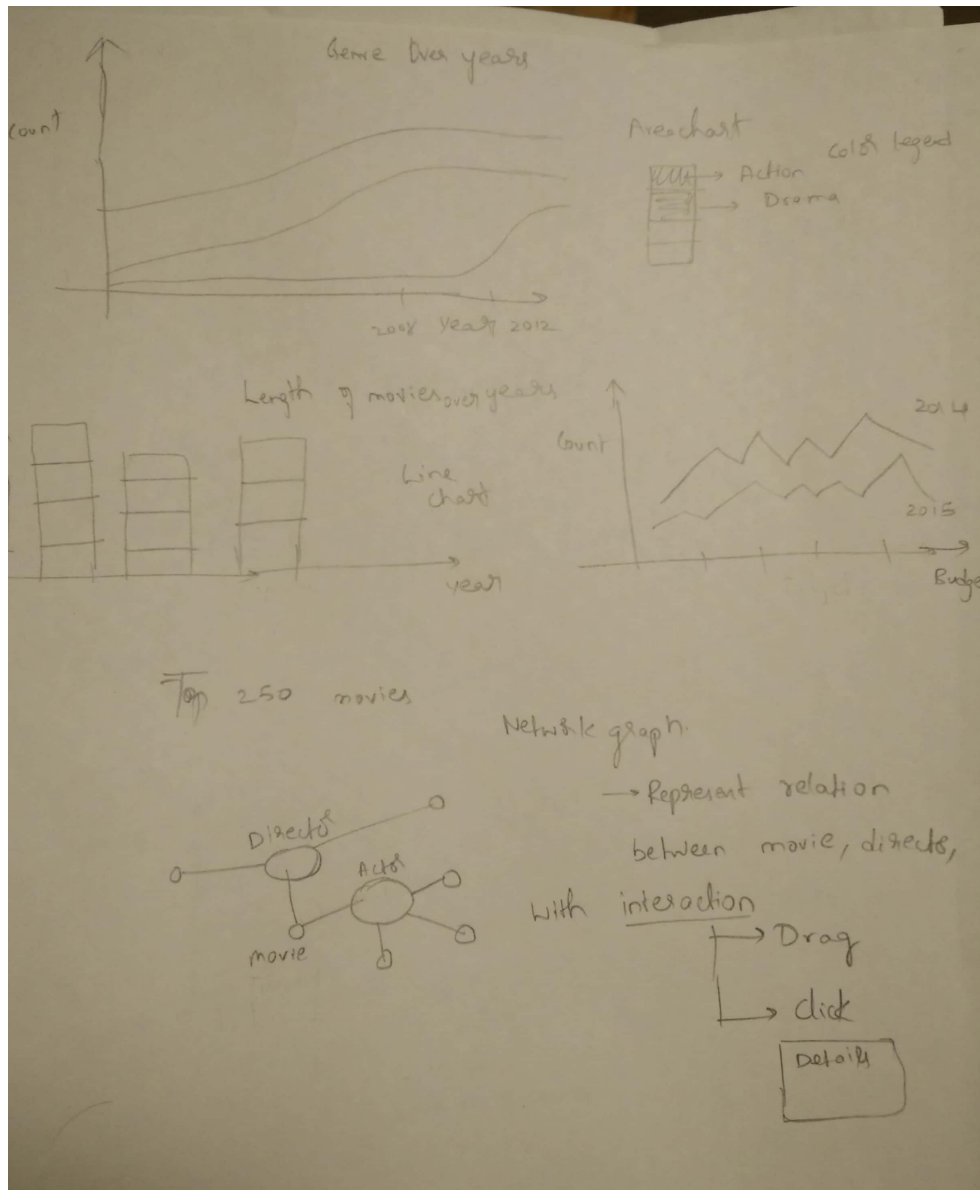 Genre Over years
Count
2008 year 2012
Areachart
Color legend
Action
Drama
Length of movies over years
Line
chart
year
Count
2014
2015
Budge
Top 250 movies
Network graph.
→ Represent relation
between movie, directs,
with interaction
→ Drag
→ click
Details
Director
Actor
movie